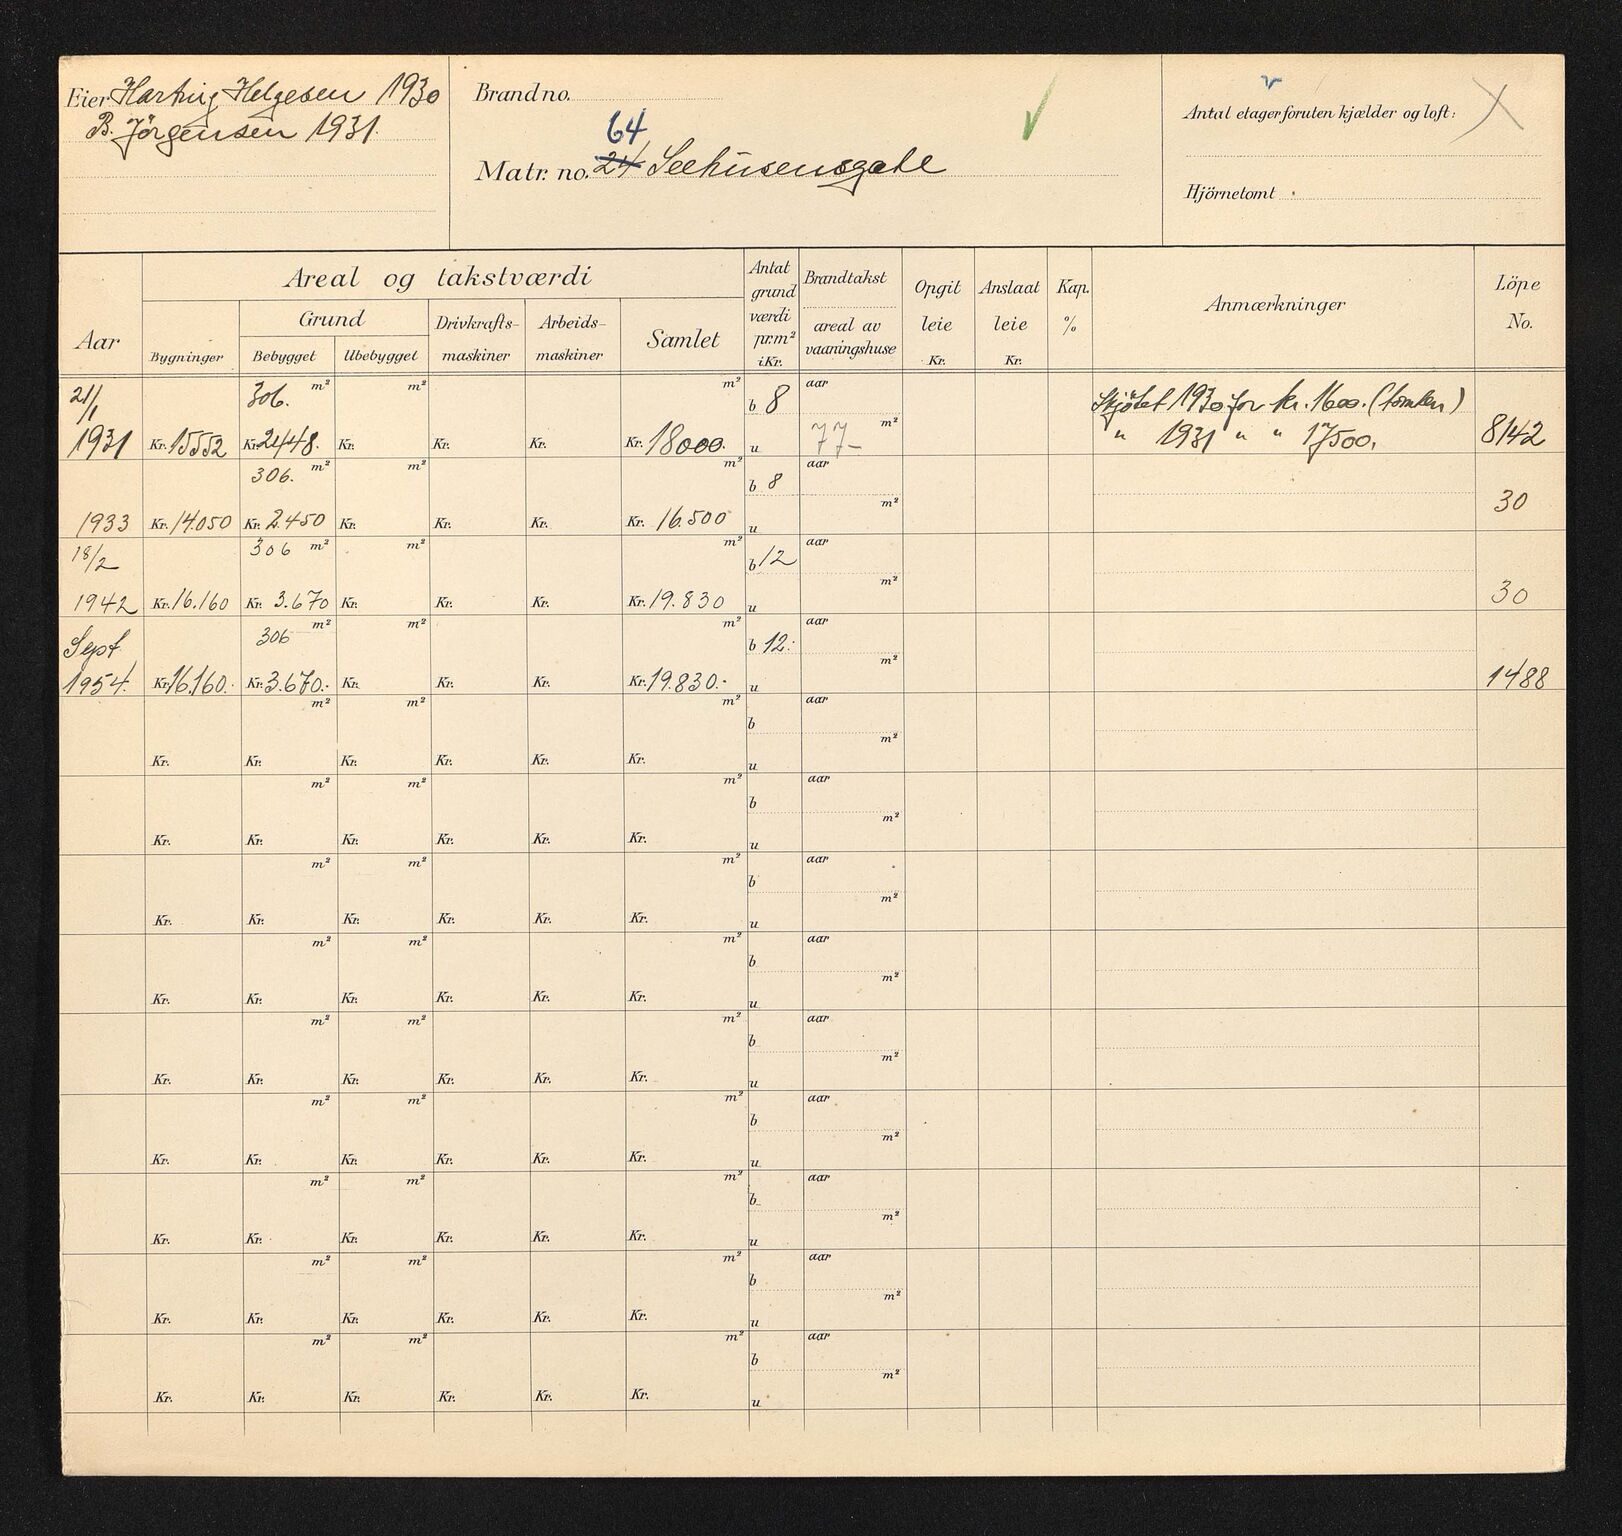 Eier Hartvig Helgesen 1930
B. Jörgensen 1931.
Brand no.
64
Matr. no. 24 Seehusensgate
Antal etager foruten kjælder og loft:
Hjörnetomt
Aar
Areal og takstværdi
Grund
Bygninger
Bebygget
Ubebygget
Drivkrafts-
maskiner
Arbeids-
maskiner
Samlet
Antat
grund
værdi
pr.m²
i Kr.
Brandtakst
areal av
vaaningshuse
Opgit
leie
Kr.
Anslaat
leie
Kr.
Kap.
%
Anmærkninger
Löpe
No.
21/1 306. m² m² m² b 8 aar Skjötet 1930 for kr. 1600. (tomten)
1931 Kr. 15552 Kr. 2448. Kr. Kr. Kr. Kr. 18000. u 77- m² " 1931 " " 17500. 8142
306. m² m² m² b 8 aar
1933 Kr. 14.050 Kr. 2.450 Kr. Kr. Kr. Kr. 16.500 u m² 30
18/2 306 m² m² m² b 12 aar
1942 Kr. 16.160 Kr. 3.670 Kr. Kr. Kr. Kr. 19.830 u m² 30
Sept. 306 m² m² m² b 12.- aar
1954. Kr. 16.160.- Kr. 3.670.- Kr. Kr. Kr. Kr. 19.830.- u m² 1488
m² m² m² b aar
Kr. Kr. Kr. Kr. Kr. Kr. u m²
m² m² m² b aar
Kr. Kr. Kr. Kr. Kr. Kr. u m²
m² m² m² b aar
Kr. Kr. Kr. Kr. Kr. Kr. u m²
m² m² m² b aar
Kr. Kr. Kr. Kr. Kr. Kr. u m²
m² m² m² b aar
Kr. Kr. Kr. Kr. Kr. Kr. u m²
m² m² m² b aar
Kr. Kr. Kr. Kr. Kr. Kr. u m²
m² m² m² b aar
Kr. Kr. Kr. Kr. Kr. Kr. u m²
m² m² m² b aar
Kr. Kr. Kr. Kr. Kr. Kr. u m²
m² m² m² b aar
Kr. Kr. Kr. Kr. Kr. Kr. u m²